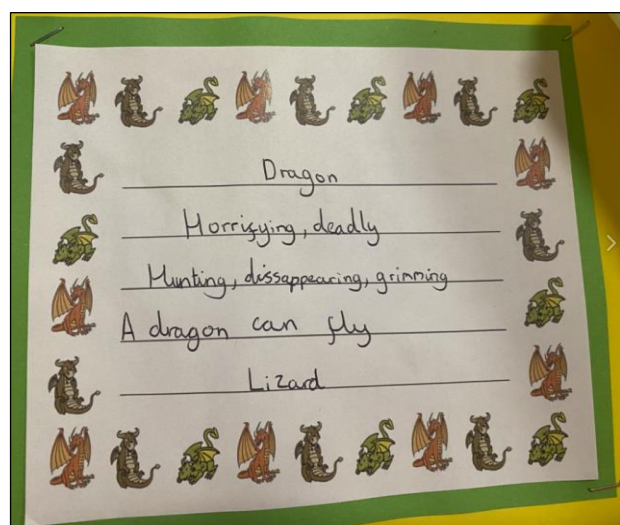 Dragon
Horrifying, deadly
Hunting, dissappearing, grimming
A dragon can fly
Lizard